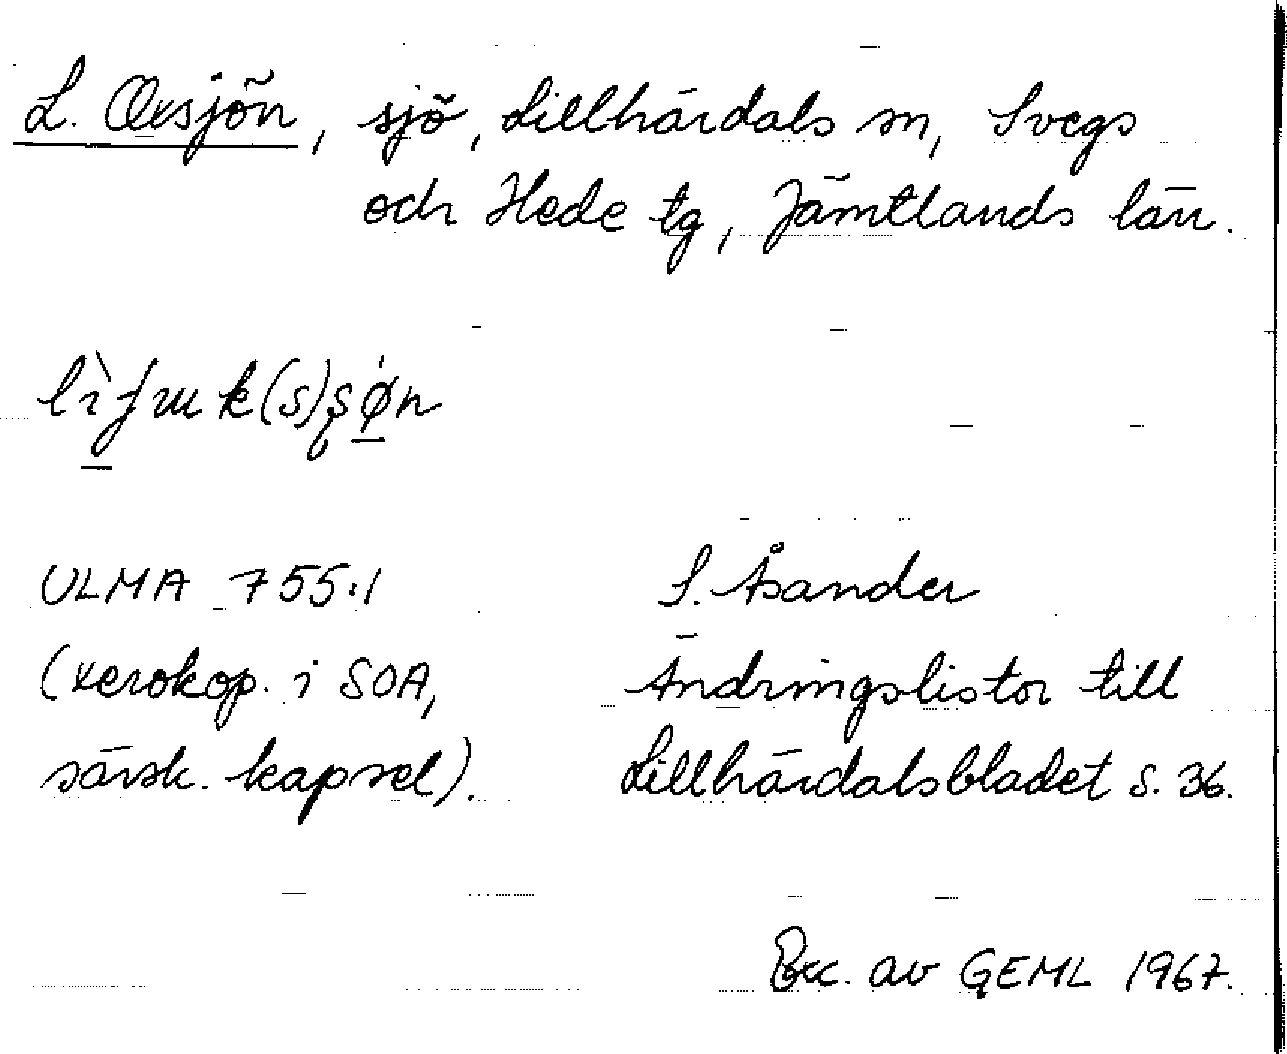 L. Oxsjön, sjö, Lillhärdals sn, Svegs
och Hede tg, Jämtlands län.
ULMA 755:1
S. Åsander
(xerokop. i SOA,
Ändringslistor till
särsk. kapsel).
Lillhärdalsbladet s. 36.
Exc. av GEML 1967.